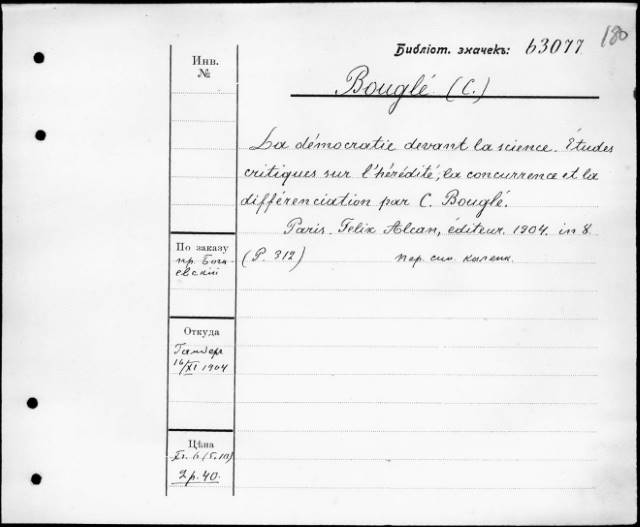 180
Библіот. значекъ: b3077
Инв.
№
Bouglé (C.)
La démocratie devant la science. Études
critiques sur l'hérédité, la concurrence et la
différenciation par C. Bouglé.
Paris. Felix Alcan, éditeur. 1904. in 8.
(P. 312) пер. син. каленк.
По заказу
пр. Бога-
евскій
Откуда
16/XI 1904
Цѣна
2 р. 40.